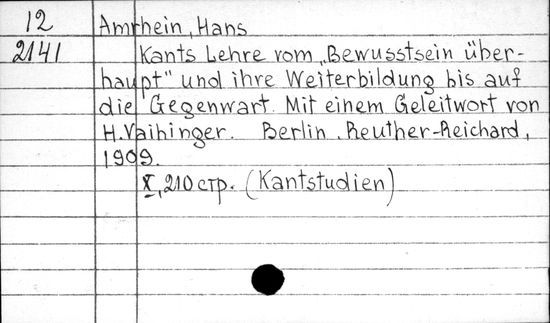 12 Amrhein, Hans
2141 Kants Lehre vom „Bewusstsein über-
haupt" und ihre Weiterbildung bis auf
die Gegenwart. Mit einem Geleitwort von
H. Vaihinger. Berlin, Reuther-Reichard,
1909.
X, 210 стр. (Kantstudien)